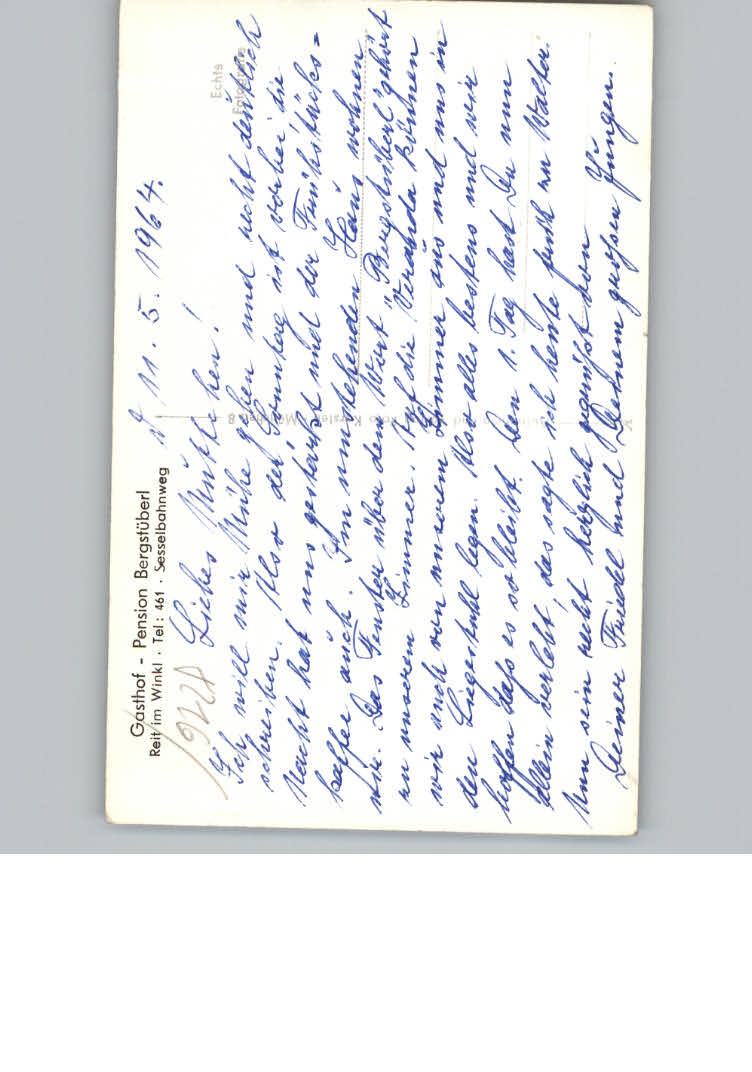 Gasthof - Pension Bergstüberl
Reit/im Winkl · Tel: 461 · Sesselbahnweg
Echte
Fotografie
d 11. 5. 1964.
Liebes Muttchen!
Ich will mir Mühe geben und recht deutlich
schreiben. Also der Sonntag ist vorbei die
Nacht hat uns gestärkt und der Frühstücks=
kaffee auch. Im umstehenden Haus wohnen
wir. Das Fenster über dem Wort "Bergstüberl" gehört
zu unserem Zimmer. Auf die Veranda können
wir auch von unserem Zimmer aus und uns in
den Liegestuhl legen. Also alles bestens und wir
hoffen daß es so bleibt. Den 1. Tag hast Du nun
allein verlebt, das sagte ich heute früh zu Walter.
Nun sei recht herzlich gegrüßt von
Deiner Friedel und Deinem großen Jungen.